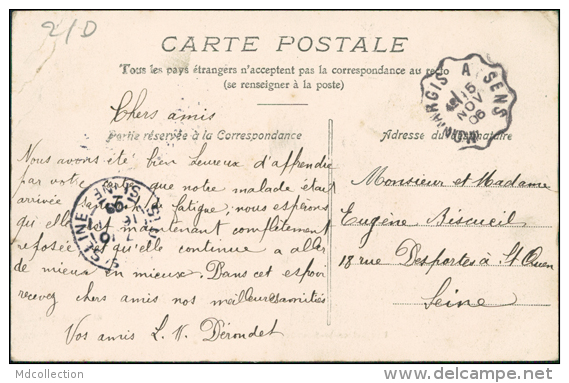 2/D
CARTE POSTALE
Tous les pays étrangers n'acceptent pas la correspondance au recto
(se renseigner à la poste)
MONTARGIS A SENS
15
NOV
06
Chers amis
Partie réservée à la Correspondance
Adresse du destinataire
Nous avons été bien heureux d'apprendre
par votre carte que notre malade était
arrivée sans fatigue, nous espérons
qu'elle est maintenant complètement
reposée et qu'elle continue a aller
de mieux en mieux. Dans cet espoir
recevez chers amis nos meilleures amitiés
Vos amis L. V. Dérondet
Monsieur et Madame
Eugène Biscueil
18 rue Desportes à St Ouen
Seine
ST OUEN
SEINE
16
Mdcollection
delcampe.net